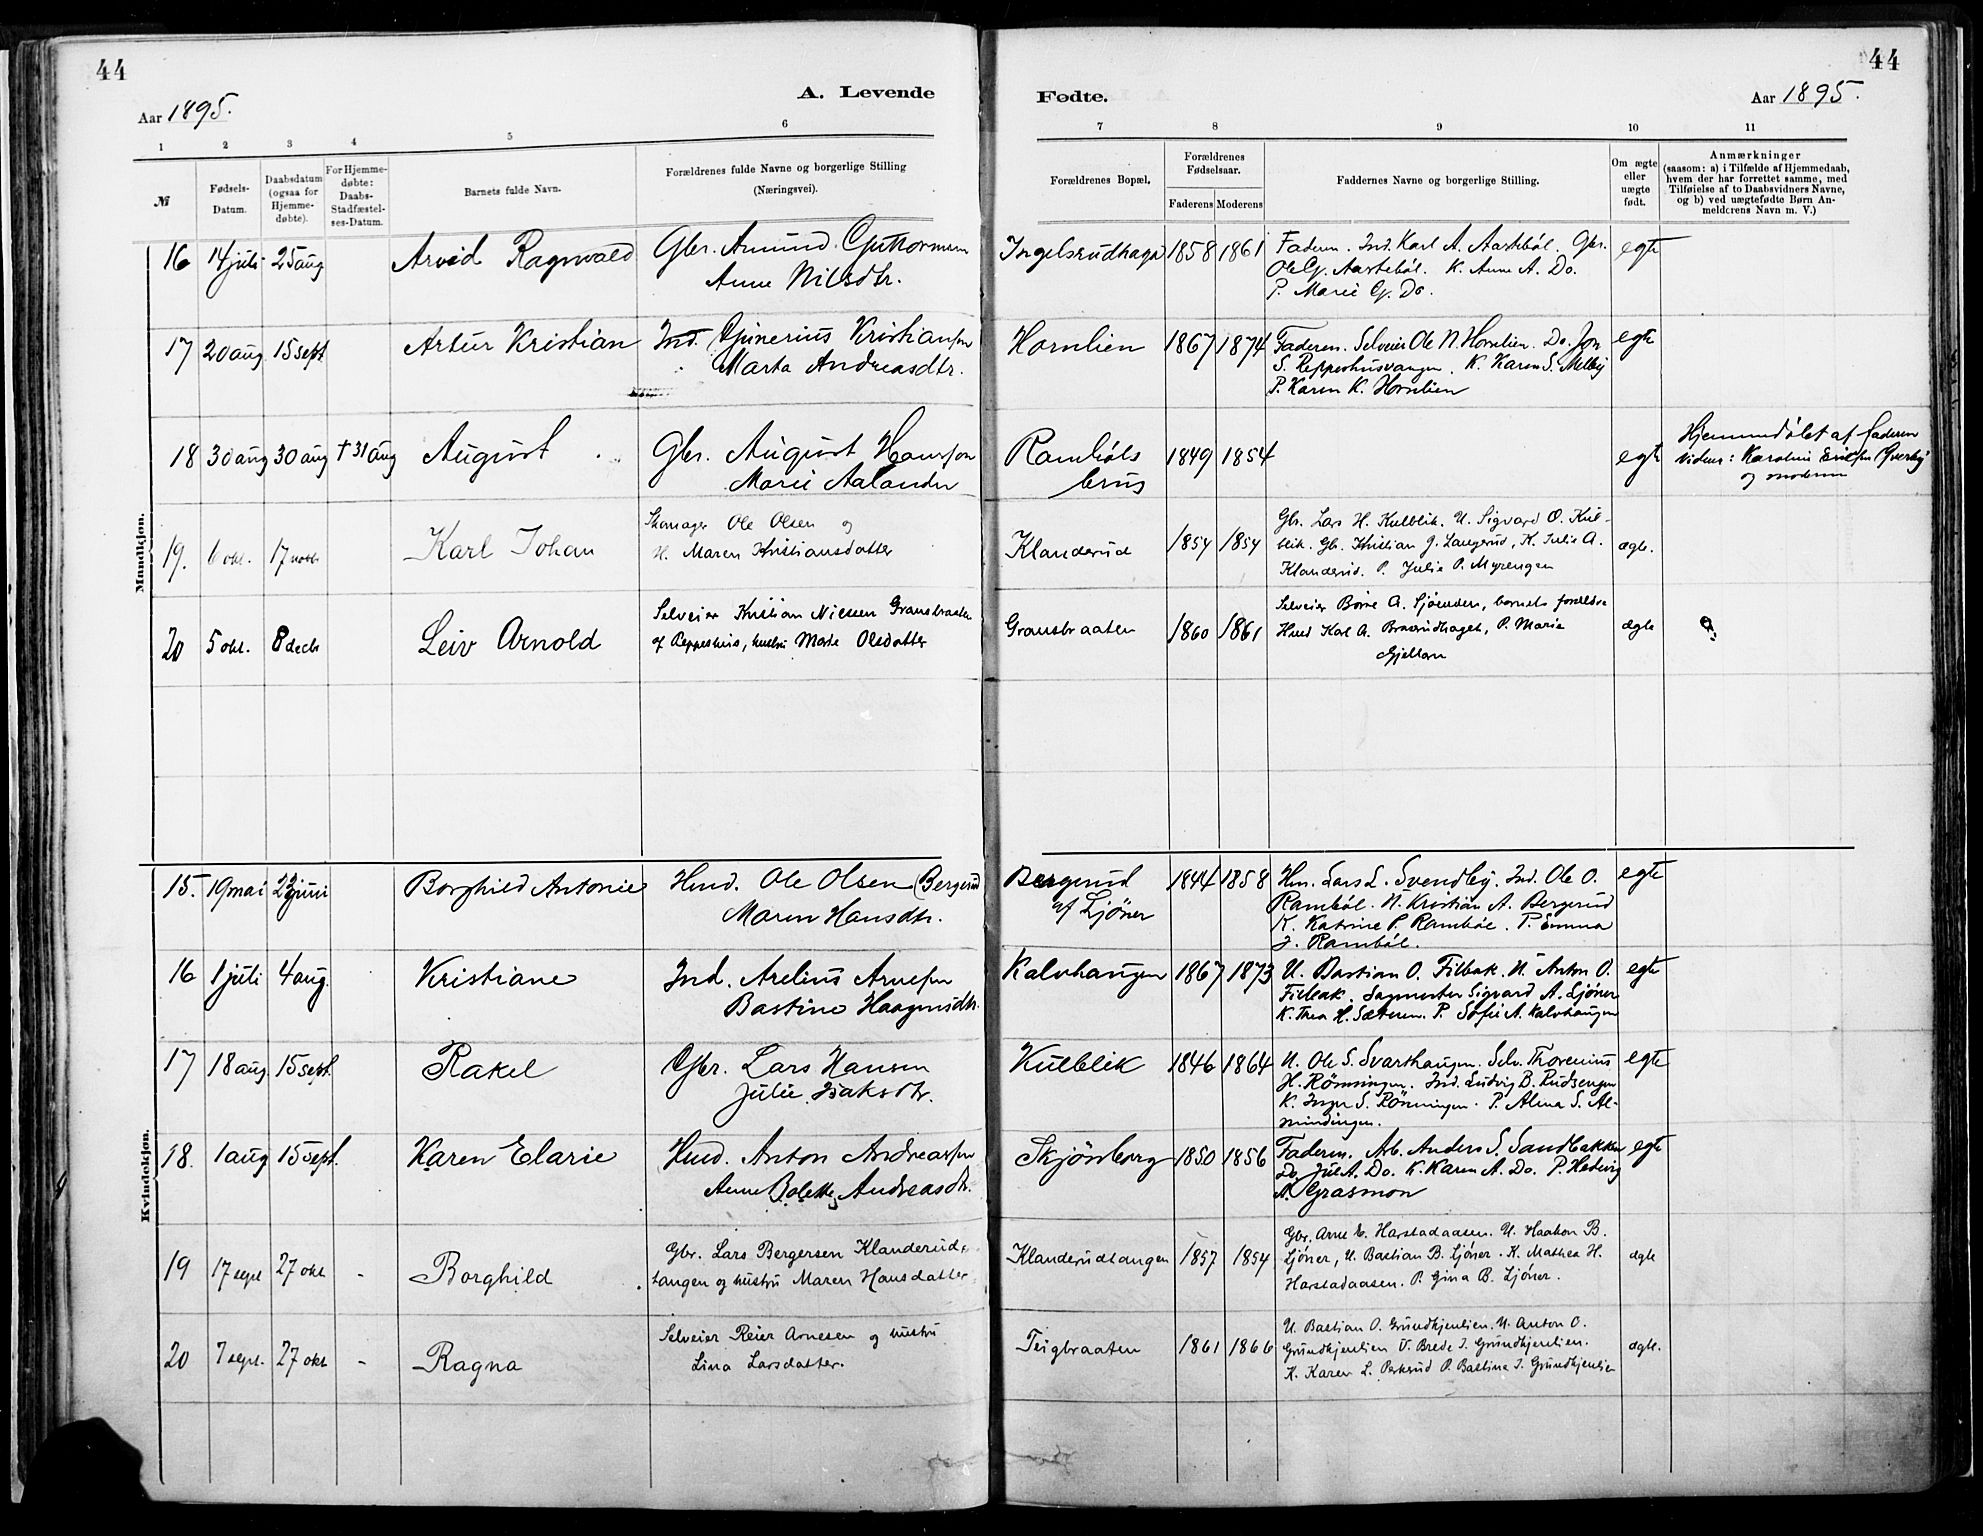 44
44
Aar 1895.
A. Levende
Fødte.
Aar 1895.
1 2 3 4 5 6 7 8 9 10 11
№
Fødsels-
Datum.
Daabsdatum
(ogsaa for
Hjemme-
døbte).
For Hjemme-
døbte:
Daabs-
Stadfæstel-
ses-Datum.
Barnets fulde Navn.
Forældrenes fulde Navne og borgerlige Stilling
(Næringsvei).
Forældrenes Bopæl.
Forældrenes
Fødselsaar.
Faderens Moderens
Faddernes Navne og borgerlige Stilling.
Om ægte
eller
uægte
født.
Anmærkninger
(saasom: a) i Tilfælde af Hjemmedaab,
hvem der har forrettet samme, med
Tilføielse af to Daabsvidners Navne,
og b) ved uægtefødte Børn An-
melderens Navn m. V.)
Mandkjøn.
16 14 juli 25 aug Arvid Ragnvald
Gbr. Amund Guttormsen
Anne Nilsdtr.
Ingelsrudhaga 1858 1861
Faderen. Ind. Karl A. Aastebøl. Gbr.
Ole G. Aastebøl. K. Anne A. Do.
P. Marie G. Do.
egte
17 20 aug 15 sept Artur Kristian
Ind. Gunerius Kristiansen
Marta Andreasdtr.
Hornlien 1867 1874
Faderen. Selveier Ole N. Hornlien. Do. Jon
S. Reppeshusvangen. K. Karen S. Melby
P. Karen K. Hornlien
egte
18 30 aug 30 aug † 31 aug August
Gbr. August Hansen
Marie Aalander
Rambøls
brus
1849 1854
egte
Hjemmedøbt af faderen
Vidner: Karoline
og moderen
19. 6 okt. 17 novbr Karl Johan
Skomager Ole Olsen og
H. Maren Kristiansdatter
Klanderud 1854 1854
Gbr. Lars H. Kulblik. U. Sigvard O. Kul-
blik. Gb. Kristian J. Langerud, K. Julie A.
Klanderud. P. Julie P. Myrengen
ægte.
20 5 okt. 8 decbr Leiv Arnold
Selveier Kristian Nilssen Granbraaten
af Reppeshus, hustru Marte Olsdatter
Granbraaten 1860 1861
Selveier Børre A. Sjøenden, barnets forældre
Hmd Karl A. Braarudhaget, P. Marie
Gjeltorn
ægte
Kvindekjøn.
15. 19 mai 23 juni Borghild Antonie
Hmd. Ole Olsen (Bergerud
Maren Hansdtr.
Bergerud
af Ljöner
1844 1858
Hm. Lars L. Svendby. Ind. Ole O.
Rambøl. U. Kristian A. Bergerud
K. Katrine P. Rambøl. P. Emma
J. Rambøl.
egte
16 1 juli 4 aug. Kristiane
Ind. Arelius Arnesen
Bastine Haagensdtr.
Kalvhaugen 1867 1873
U. Bastian O. Filbak. U. Anton O.
Filbak. Sagmester Sigvard A. Ljöner
K. Thea H. Sæteren. P. Sofie A. Kalvhaugen
egte
17 18 aug 15 sept. Rakel
Gbr. Lars Hansen
Julie Isaksdtr.
Kulblik 1846 1864
U. Ole S. Svarthaugen. Selv. Thorenius
H. Rönningen. Ind. Ludvig B. Rudsengen
K. Inger S. Rönningen. P. Alma S. Al-
mindingen.
egte
18. 1 aug 15 sept. Karen Elarie
Hmd. Anton Andreassen
Anne Bolette Andreasdtr.
Skjönborg 1850 1856
Faderen. Arb. Anders S. Sandbakken
Do. Jul A. Do. K. Karen A. Do. P. Hedvig
A. Grasmon
egte
19 17 sept 27 okt - Borghild
Gbr. Lars Bergersen Klanderud-
tangen og hustru Maren Hansdatter
Klanderudtangen 1857 1854
Gbr. Arne E. Harstadaasen. U. Haakon B.
Ljöner, U. Bastian B. Ljöner. K. Mathea H.
Harstadaasen. P. Gina B. Ljöner.
ægte
20 7 sept. 27 okt - Ragna
Selveier Reier Arnesen og hustru
Lina Larsdatter.
Teigbraaten 1861 1866
U. Bastian O. Grundhjenlien. U. Anton O.
Grundhjenlien U. Brede I. Grundhjenlien.
K. Karen L. Perkrud P. Bastina I. Grundhjenlien
ægte.